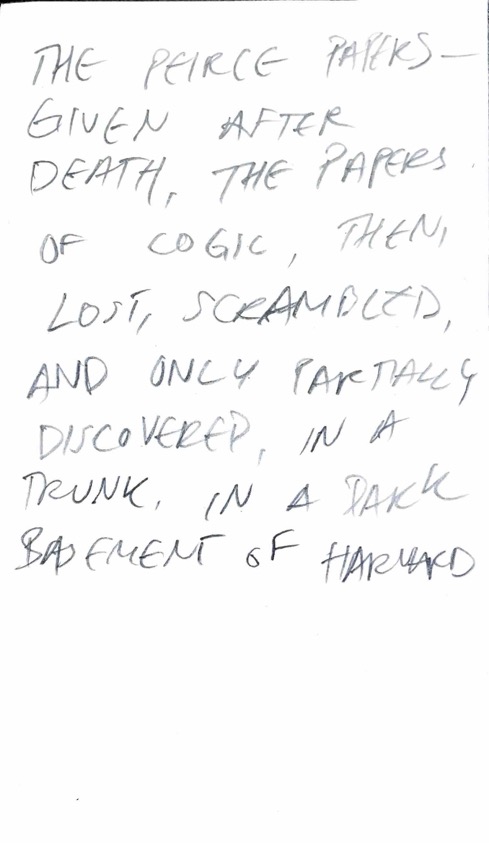 THE PEIRCE PAPERS—
GIVEN AFTER
DEATH, THE PAPERS
OF LOGIC, THEN,
LOST, SCRAMBLED,
AND ONLY PARTIALLY
DISCOVERED, IN A
TRUNK, IN A DARK
BASEMENT OF HARVARD